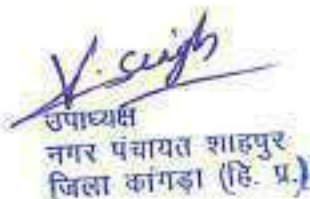 V. Singh
उपाध्यक्ष
नगर पंचायत शाहपुर
जिला कांगड़ा (हि. प्र.)